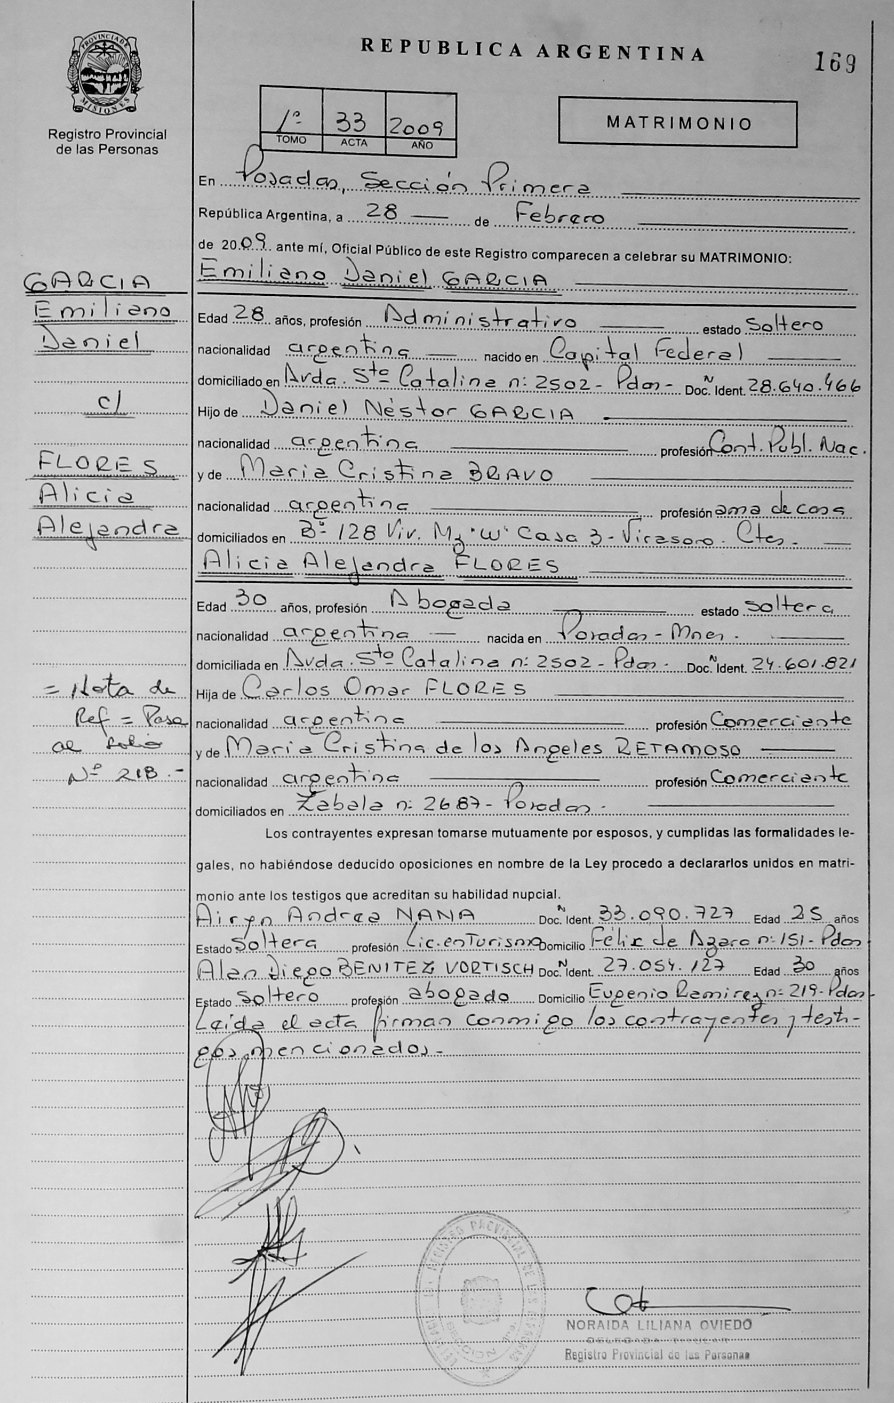 REPUBLICA ARGENTINA
169
PROVINCIA DE MISIONES
Registro Provincial
de las Personas
1º 33 2009
TOMO ACTA AÑO
MATRIMONIO
En Posadas, Sección Primera
República Argentina, a 28 de Febrero
de 2009. ante mí, Oficial Público de este Registro comparecen a celebrar su MATRIMONIO:
Emiliano Daniel GARCIA
GARCIA
Emiliano
Daniel
c/
FLORES
Alicia
Alejandra
Edad 28 años, profesión Administrativo estado Soltero
nacionalidad argentina nacido en Capital Federal
domiciliado en Avda. Sta Catalina nº 2502 - Pdas - Doc. Nº Ident. 28.640.466
Hijo de Daniel Néstor GARCIA
nacionalidad argentina profesión Cont. Publ. Nac.
y de Maria Cristina BRAVO
nacionalidad argentina profesión ama de casa
domiciliados en Bº 128 Viv. Mz "W" Casa 3 - Virasoro. Ctes -
Alicia Alejandra FLORES
Edad 30 años, profesión Abogada estado soltera
nacionalidad argentina nacida en Posadas - Mnes.
domiciliada en Avda. Sta Catalina nº 2502 - Pdas. Doc. Nº Ident. 24.601.821
Hija de Carlos Omar FLORES
nacionalidad argentina profesión Comerciante
y de Maria Cristina de los Angeles RETAMOSO
nacionalidad argentina profesión Comerciante
domiciliados en Zabala nº 2687 - Posadas -
= Nota de
Ref = Pasa
al folio
Nº 218.-
Los contrayentes expresan tomarse mutuamente por esposos, y cumplidas las formalidades le-
gales, no habiéndose deducido oposiciones en nombre de la Ley procedo a declararlos unidos en matri-
monio ante los testigos que acreditan su habilidad nupcial.
Andrea NANA Doc. Nº Ident. 33.090.727 Edad 25 años
Estado Soltera profesión Lic. en Turismo Domicilio Félix de Azara nº 151 - Pdas
Alan Diego BENITEZ VORTISCH Doc. Nº Ident. 27.054.127 Edad 30 años
Estado soltero profesión abogado Domicilio Eugenio Ramirez nº 219 - Pdas -
Leida el acta firman conmigo los contrayentes y testi-
gos mencionados -
NORAIDA LILIANA OVIEDO
DELEGADA TITULAR
Registro Provincial de las Personas